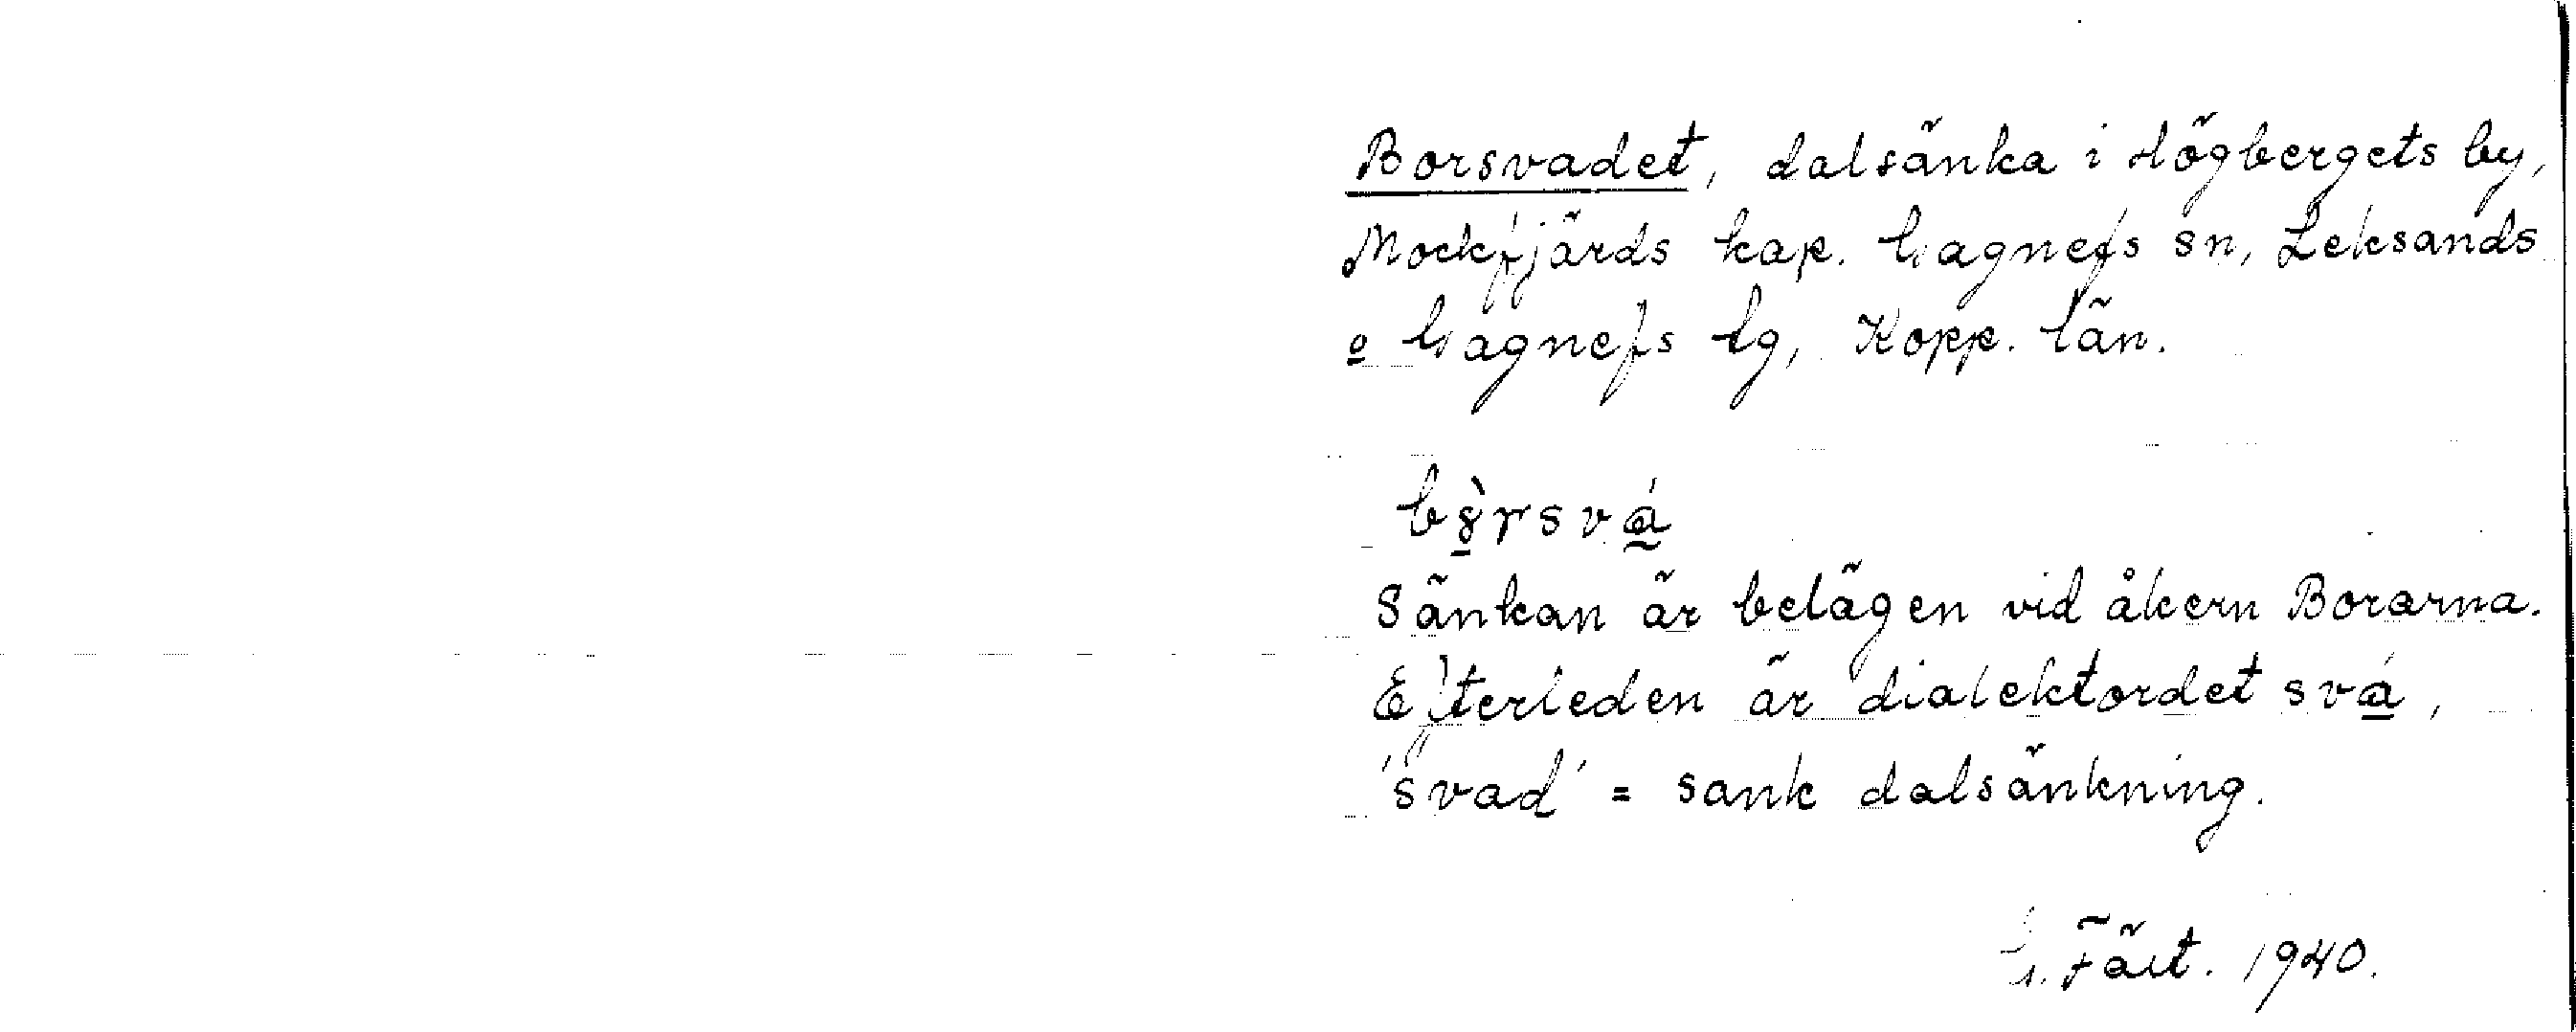 Borsvadet, dalsänka i Högbergets by,
Mockfjärds kap. Gagnefs sn, Leksands
o Gagnefs tg, Kopp. län.
Sänkan är belägen vid åkern Borarna.
Efterleden är dialektordet svá,
'svad' = sank dalsänkning.
1940.